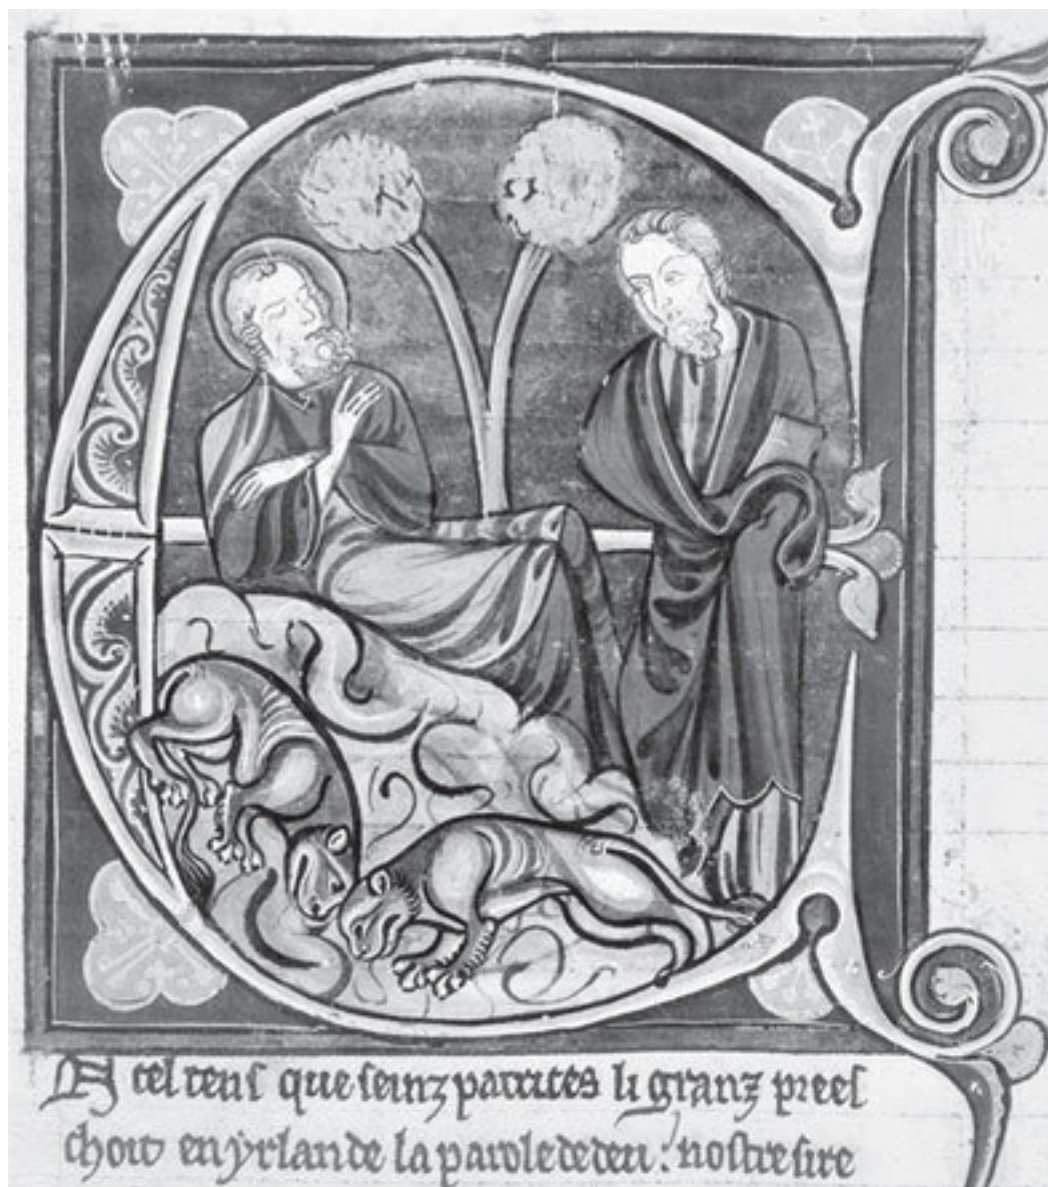 EN cel tens que seinz patrices li granz prees
choit en yrlande la parole de deu: nostre sire